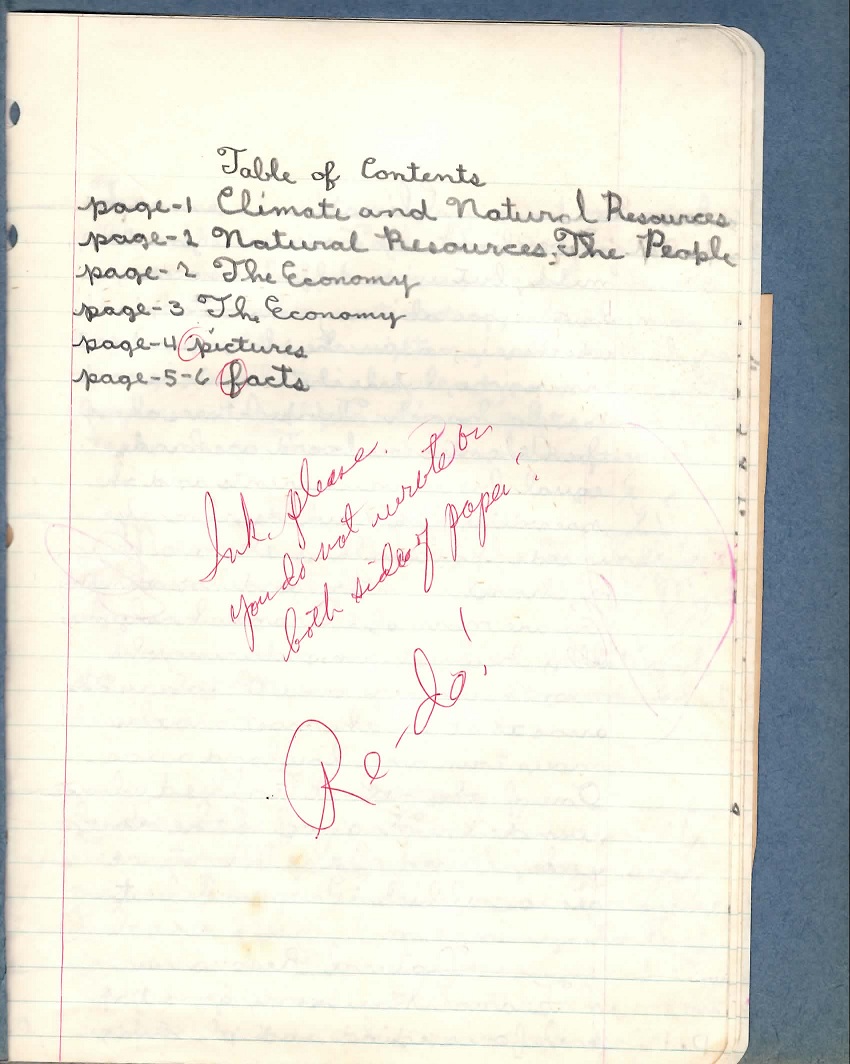 Table of Contents
page-1 Climate and Natural Resources
page-2 Natural Resources, The People
page-2 The Economy
page-3 The Economy
page-4 pictures
page-5-6 facts
Ink, please.
you do not wrote on
both sides of paper!
Re-do!